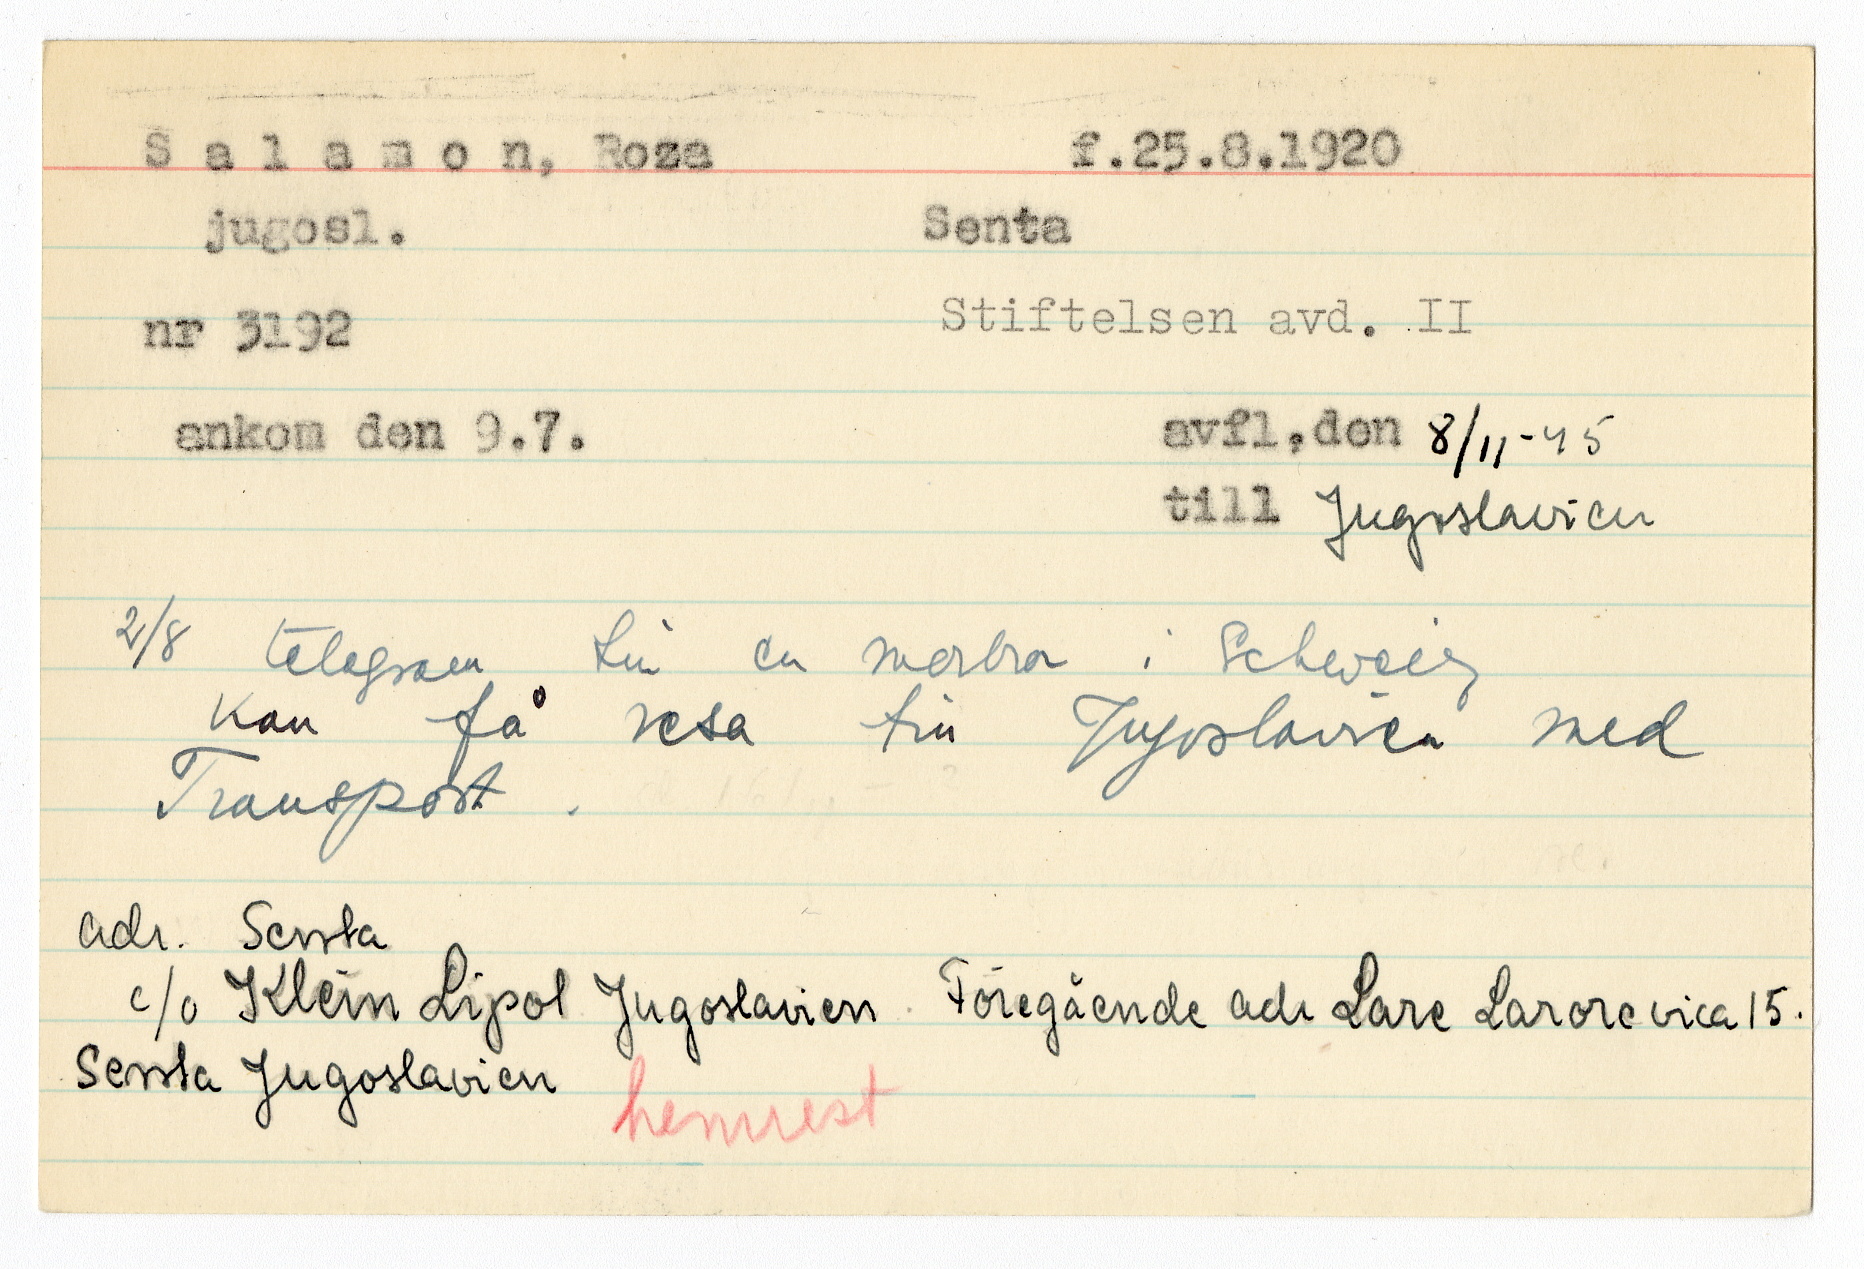 S a l a m o n, Roza f.25.8.1920
jugosl. Senta
nr 3192 Stiftelsen avd. II
ankom den 9.7. avfl,den 8/11-45
till Jugoslavien
2/8 telegram till en morbror i Schweiz
Kan få resa till Jugoslavien med
Transport.
adr. Senta
c/o Klein Lipol Jugoslavien. Föregående adr Lare Larorevica 15.
Senta Jugoslavien hemrest